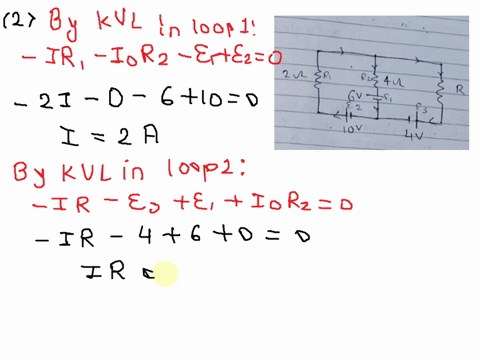 (2) By KVL in loop1:
- IR₁ - I₀R₂ - ε₁ + ε₂ = 0
- 2I - 0 - 6 + 10 = 0
I = 2 A
By KVL in loop2:
- IR - ε₃ + ε₁ + I₀R₂ = 0
- IR - 4 + 6 + 0 = 0
IR =
2Ω R₁ R₂ 4Ω R
6V ε₁
ε2 ε3
10V 4V